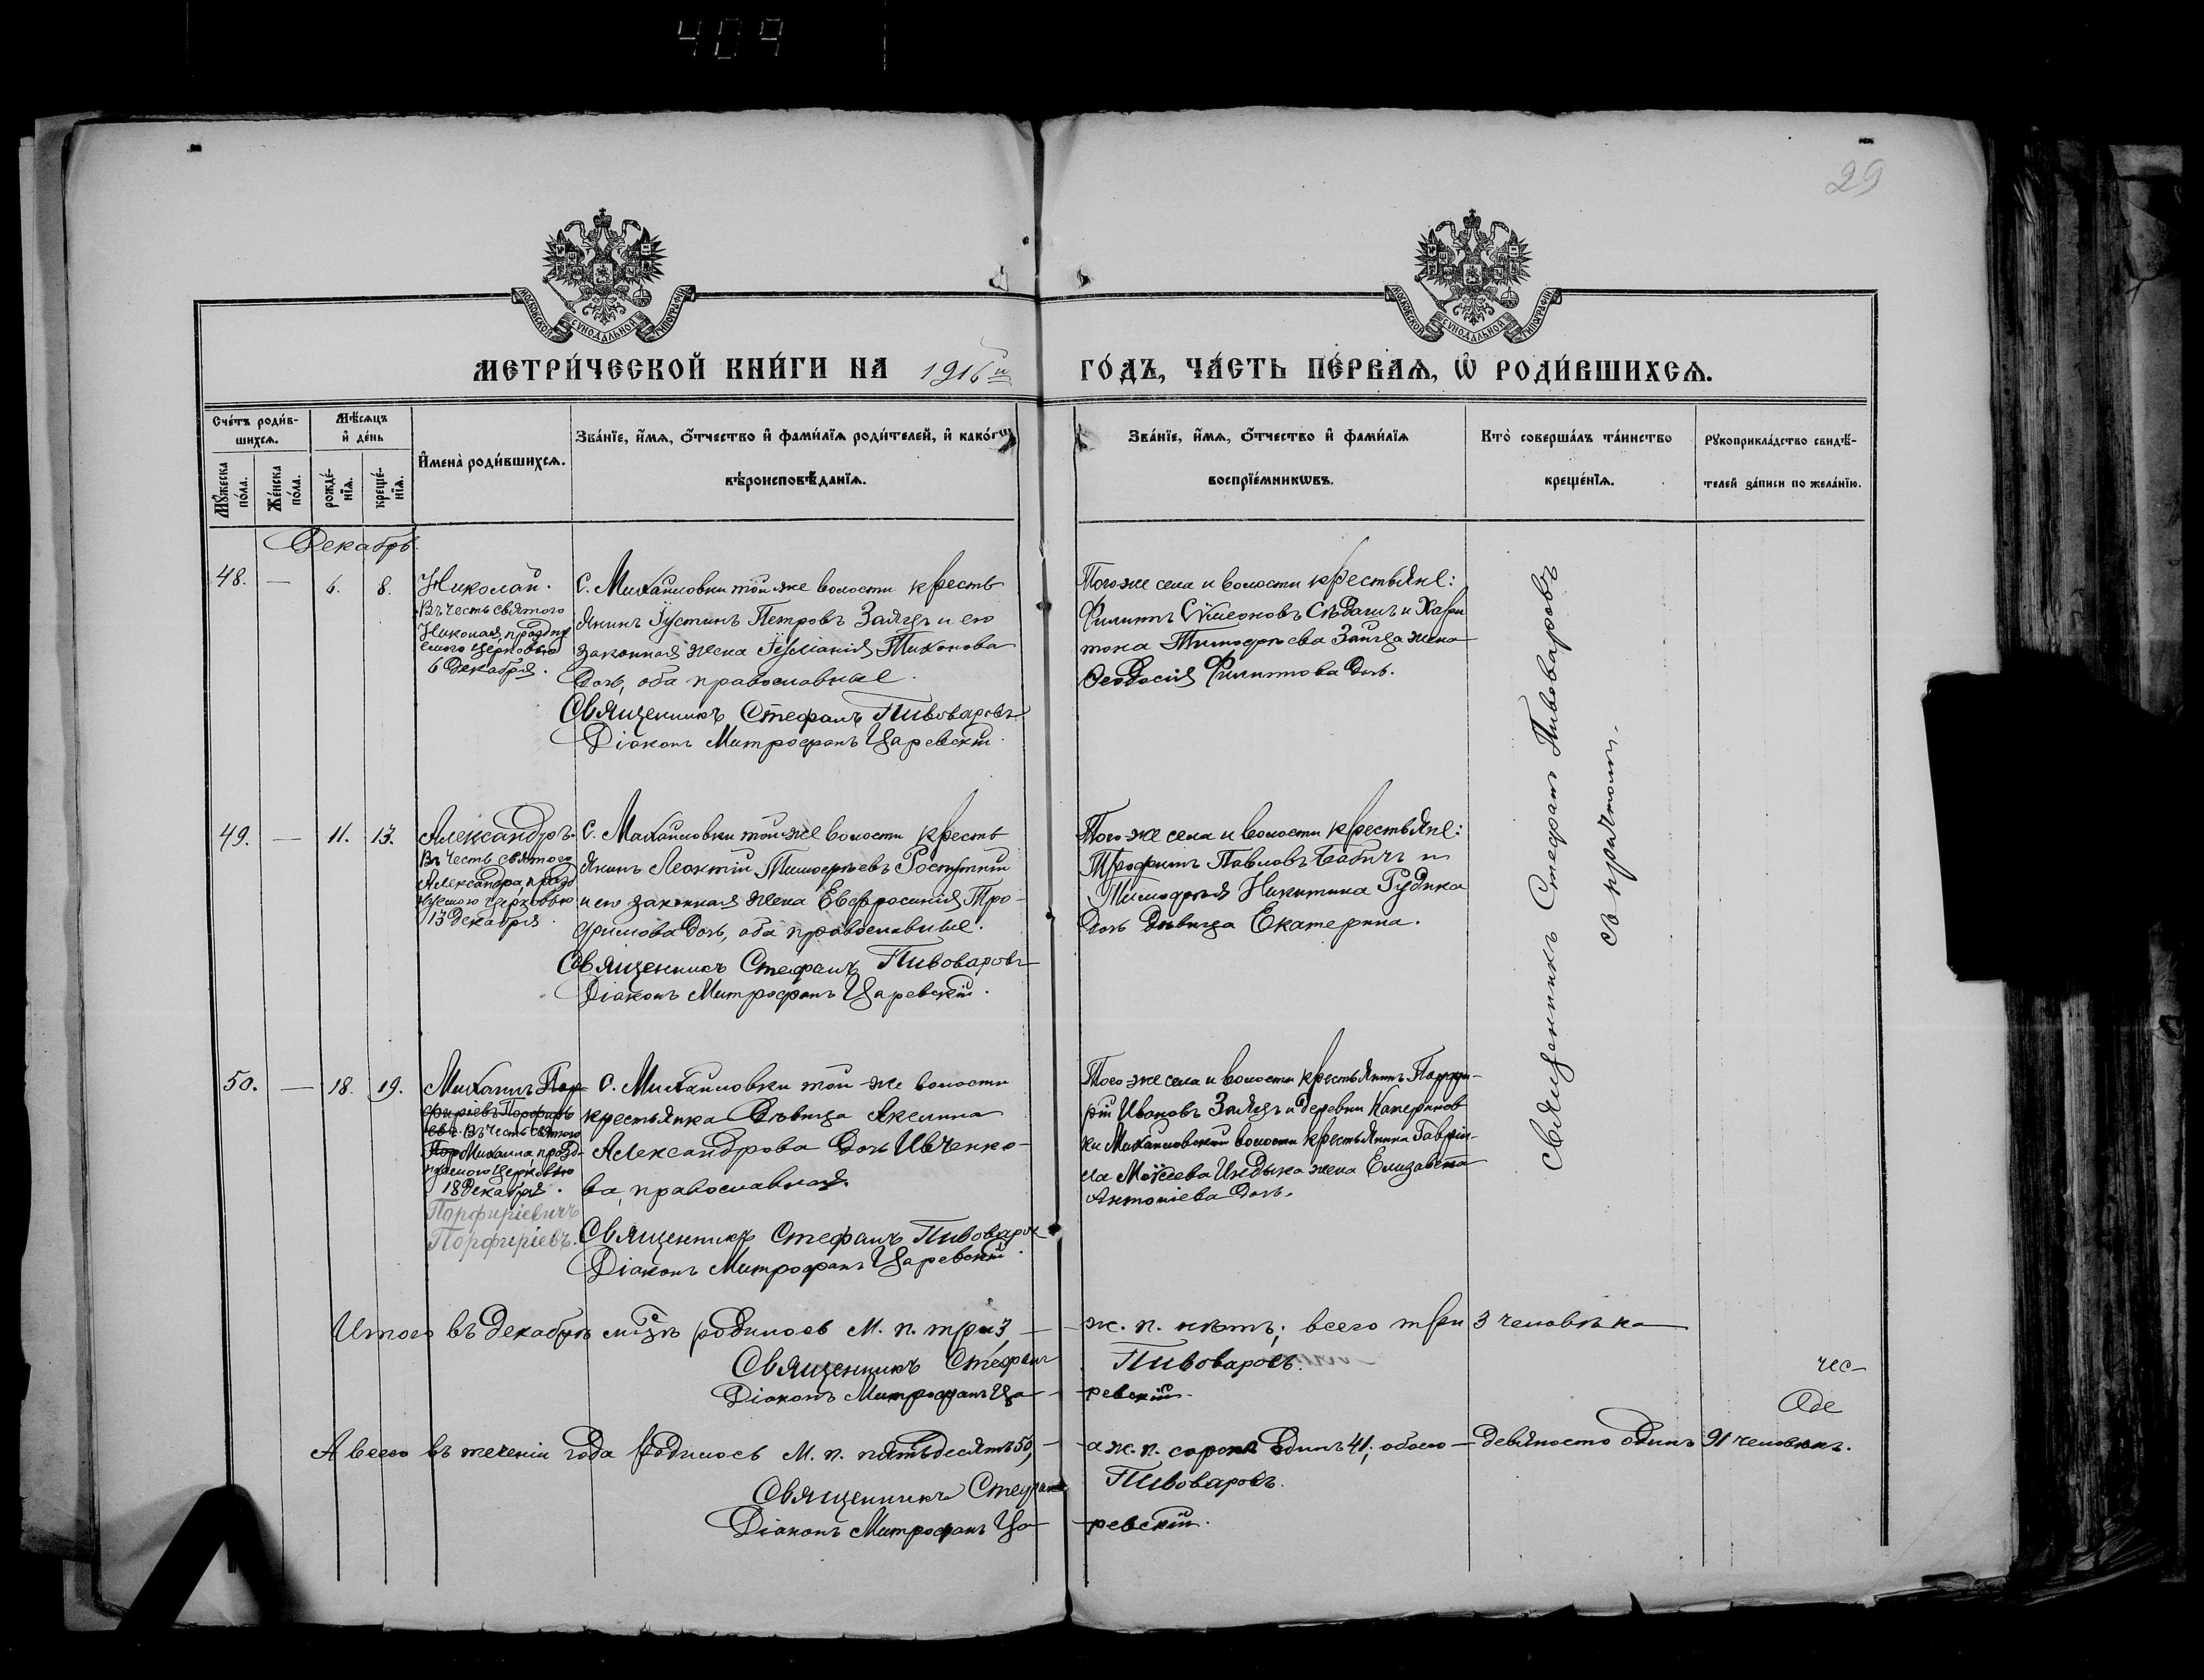 409
29
МОСКОВСКОЙ СѴНОДАЛЬНОЙ ТИПОГРАФІИ
МОСКОВСКОЙ СѴНОДАЛЬНОЙ ТИПОГРАФІИ
МЕТРИ́ЧЕСКОЙ КНИ́ГИ НА 1916й ГО́ДЪ, ЧА́СТЬ ПЕ́РВАѦ, Ѡ҆ РОДИ́ВШИХСѦ.
Сче́тъ роди́в-
шихсѧ.
Мꙋ́жеска
по́ла.
Же́нска
по́ла.
Мѣ́сѧцъ
и҆ де́нь
рожде́-
нїѧ.
креще́-
нїѧ.
И҆мена̀ роди́вшихсѧ.
Зва́нїе, и҆́мѧ, ѻ҆́тчество и҆ фами́лїѧ роди́телей, и҆ како́гѡ
вѣроисповѣ́данїѧ.
Зва́нїе, и҆́мѧ, ѻ҆́тчество и҆ фами́лїѧ
воспрїе́мникѡвъ.
Кто̀ соверша́лъ та́инство
креще́нїѧ.
Рꙋкоприкла́дство свидѣ́-
телей за́писи по жела́нїю.
Декабрь.
48. — 6. 8.
Николай.
Въ честь святого
Николая, праздну
емого церковью
6 Декабря.
С. Михайловки той же волости кресть
янинъ Іустинъ Петровъ Заяцъ и его
законная жена Іуліанія Тихонова
дочь, оба православные.
Священникъ Стефанъ Пивоваровъ
Діаконъ Митрофанъ Царевскій.
Того же села и волости крестьяне:
Филиппъ Сѵмеоновъ Сѣдашъ и Хари
тона Тимофѣева Зайца жена
Ѳеодосія Филиппова дочь.
Священникъ Стефанъ Пивоваровъ
съ причтомъ.
49. — 11. 13.
Александръ.
Въ честь святого
Александра, празд
нуемого церковью
13 декабря.
С. Михайловки той-же волости кресть
янинъ Леонтій Тимофѣевъ
и его законная жена Евфросинія Тро-
фимова дочь, оба православные.
Священникъ Стефанъ Пивоваровъ
Діаконъ Митрофанъ Царевскій.
Того-же села и волости крестьяне:
Трофимъ Павловъ Бабичъ и
Тимофѣя Никитина Рудика
дочь дѣвица Екатерина.
50. — 18. 19.
Михаилъ Пор-
фиріевъ Порфирі
евъ. Въ честь святого
Пор Михаила, празд-
нуемого церковью
18 декабря.
Порфиріевичъ
Порфиріевъ.
С. Михайловки той-же волости
крестьянка дѣвица Акелина
Александрова дочь Ивченко-
ва, православная.
Священникъ Стефанъ Пивоваров
Діаконъ Митрофанъ Царевскій.
Того же села и волости крестьянинъ Порфи-
рій Ивановъ Заяцъ и деревни Катеринов
ки Михайловской волости крестьянина Гаврі-
ла Моѵсеева Индыка жена Елизавета
Антоніева дочь.
Итого въ декабрѣ мѣсяцѣ родилось М. п. три 3, — ж. п. нѣтъ; всего три 3 человѣка
Священникъ Стефанъ Пивоваровъ.
Діаконъ Митрофанъ Царевскій.
чес-
Оде
А всего въ теченіи года родилось М. п. пятьдесятъ 50, — а ж. п. сорокъ одинъ 41; обоего — девяносто одинъ 91 человѣкъ.
Священникъ Стефанъ Пивоваровъ.
Діаконъ Митрофанъ Царевскій.